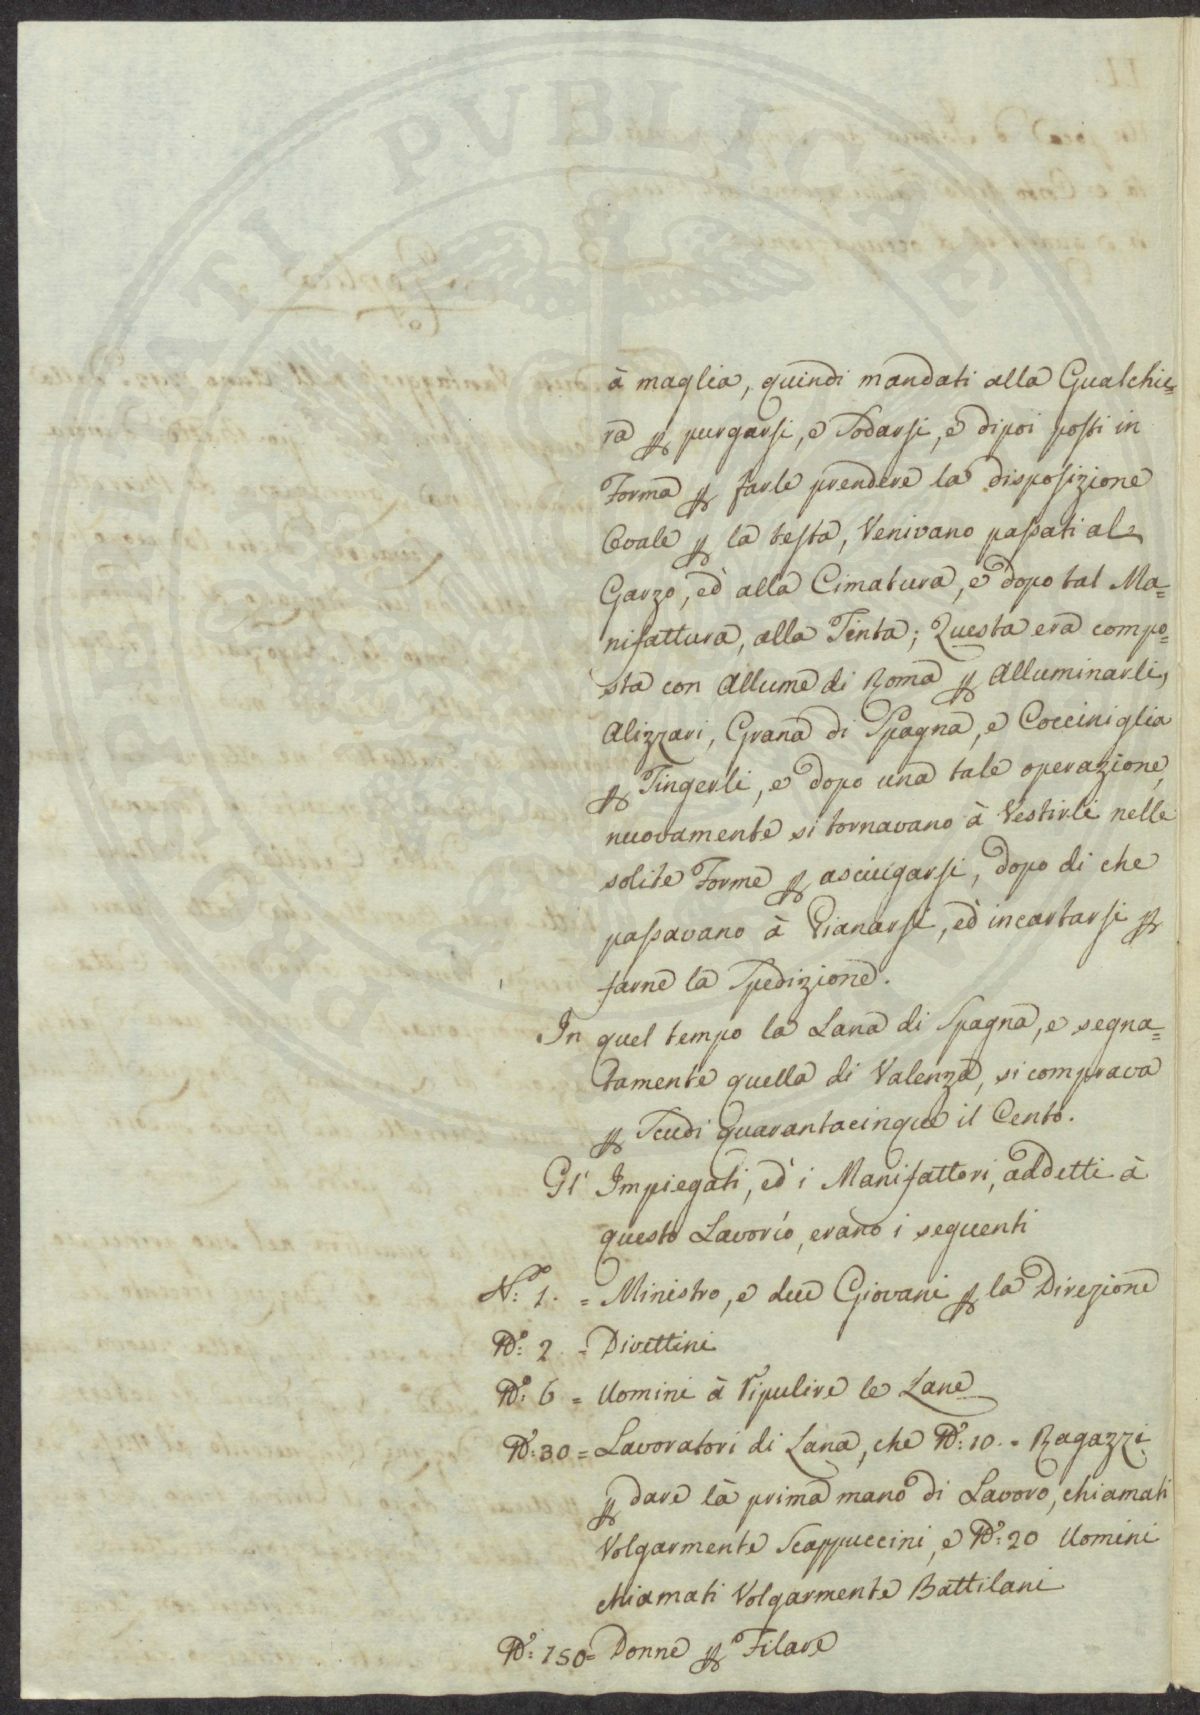 à maglia, quindi mandati alla Gualchie=
ra ꝑ purgarsi, e Sodarsi, e dipoi posti in
Forma ꝑ farle prendere la disposizione
Ovale ꝑ la testa, Venivano passati al
Garzo, ed alla Cimatura, e dopo tal Ma=
nifattura, alla Tinta; Questa era compo=
sta con Allume di Roma ꝑ Alluminarli,
Alizzari, Grana di Spagna, e Cocciniglia
ꝑ Tingerli, e dopo una tale operazione,
nuovamente si tornavano à Vestirli nelle
solite Forme ꝑ asciugarsi, dopo di che
passavano à Pianarsi, ed incartarsi ꝑ
farne la Spedizione.
In quel tempo la Lana di Spagna, e segna=
tamente quella di Valenza, si comprava
ꝑ Scudi quarantacinque il Cento.
Gl' Impiegati, ed i Manifattori, addetti à
questo Lavorìo, erano i seguenti
N.º 1. = Ministro, e due Giovani ꝑ la Direzione
Dº: 2 = Divettini
Dº: 6 = Uomini à Ripulire le Lane
Dº: 30 = Lavoratori di Lana, che Dº: 10. = Ragazzi
ꝑ dare la prima mano di Lavoro, chiamati
Volgarmente Scappuccini, e Dº: 20 Uomini
chiamati Volgarmente Battilani
Dº: 150 = Donne ꝑ Filare